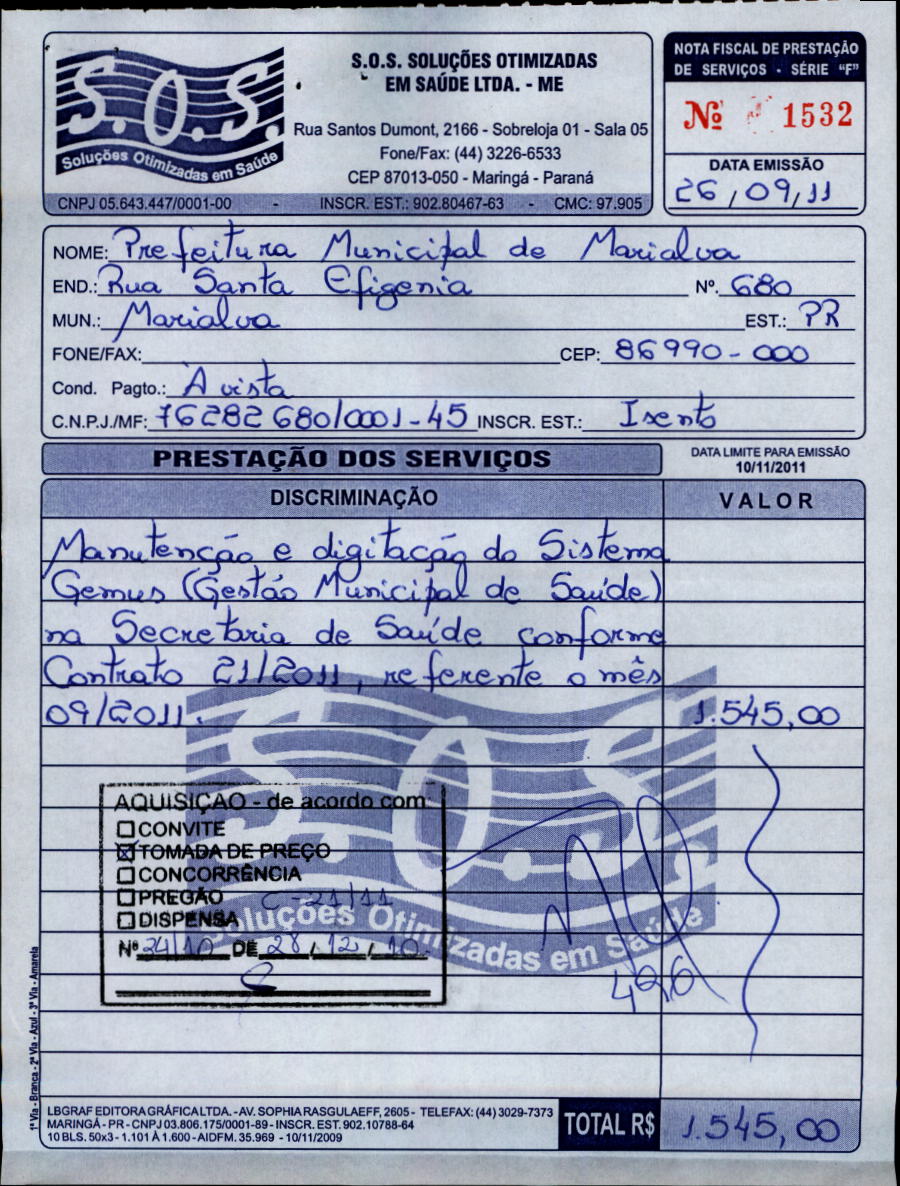 S.O.S.
Soluções Otimizadas em Saúde
S.O.S. SOLUÇÕES OTIMIZADAS
EM SAÚDE LTDA. - ME
Rua Santos Dumont, 2166 - Sobreloja 01 - Sala 05
Fone/Fax: (44) 3226-6533
CEP 87013-050 - Maringá - Paraná
CNPJ 05.643.447/0001-00 - INSCR. EST.: 902.80467-63 - CMC: 97.905
NOTA FISCAL DE PRESTAÇÃO
DE SERVIÇOS - SÉRIE "F"
Nº 1532
DATA EMISSÃO
26/09/11
NOME: Prefeitura Municipal de Marialva
END.: Rua Santa Efigenia Nº. 680
MUN.: Marialva EST.: PR
FONE/FAX: CEP: 86990-000
Cond. Pagto.: A vista
C.N.P.J./MF: 76282680/0001-45 INSCR. EST.: Isento
PRESTAÇÃO DOS SERVIÇOS
DATA LIMITE PARA EMISSÃO
10/11/2011
DISCRIMINAÇÃO VALOR
Manutenção e digitação do Sistema
Gemus (Gestão Municipal de Saúde)
na Secretaria de Saúde conforme
Contrato 21/2011, referente o mês
09/2011. 1.545,00
S.O.S.
Soluções Otimizadas em Saúde
AQUISIÇÃO - de acordo com
CONVITE
TOMADA DE PREÇO
CONCORRÊNCIA
PREGÃO C-21/11
DISPENSA
Nº 24/10 DE 28/12/10
426
1ª Via - Branca - 2ª Via - Azul - 3ª Via - Amarela
LBGRAF EDITORA GRÁFICA LTDA. - AV. SOPHIA RASGULAEFF, 2605 - TELEFAX: (44) 3029-7373
MARINGÁ - PR - CNPJ 03.806.175/0001-89 - INSCR. EST. 902.10788-64
10 BLS. 50x3 - 1.101 À 1.600 - AIDFM. 35.969 - 10/11/2009
TOTAL R$ 1.545,00